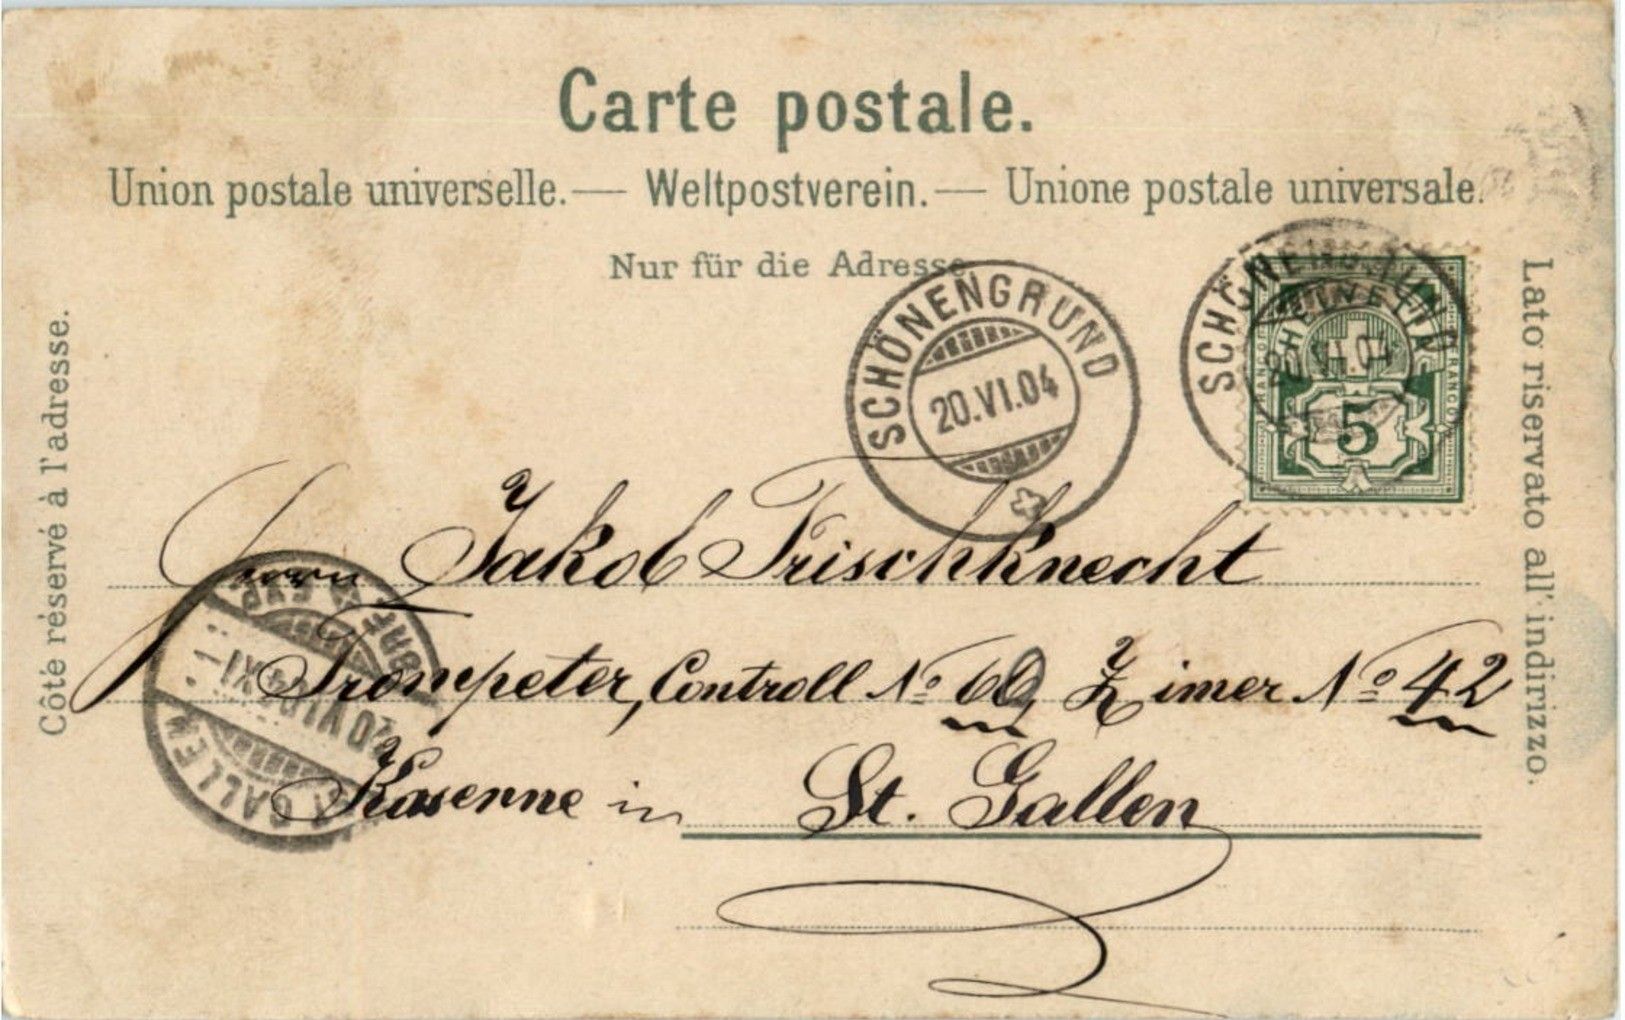 Carte postale.
Union postale universelle. — Weltpostverein. — Unione postale universale.
Nur für die Adresse
Côté réservé à l'adresse.
Lato riservato all'indirizzo.
SCHÖNENGRUND
20.VI.04
SCHÖNENGRUND
HELVETIA
FRANCO
FRANCO
5
Herrn Jakob Frischknecht
Trompeter, Controll No 60, Zimer No 42
Kaserne in St. Gallen
ST. GALLEN
20.VI.04.XI
-1-